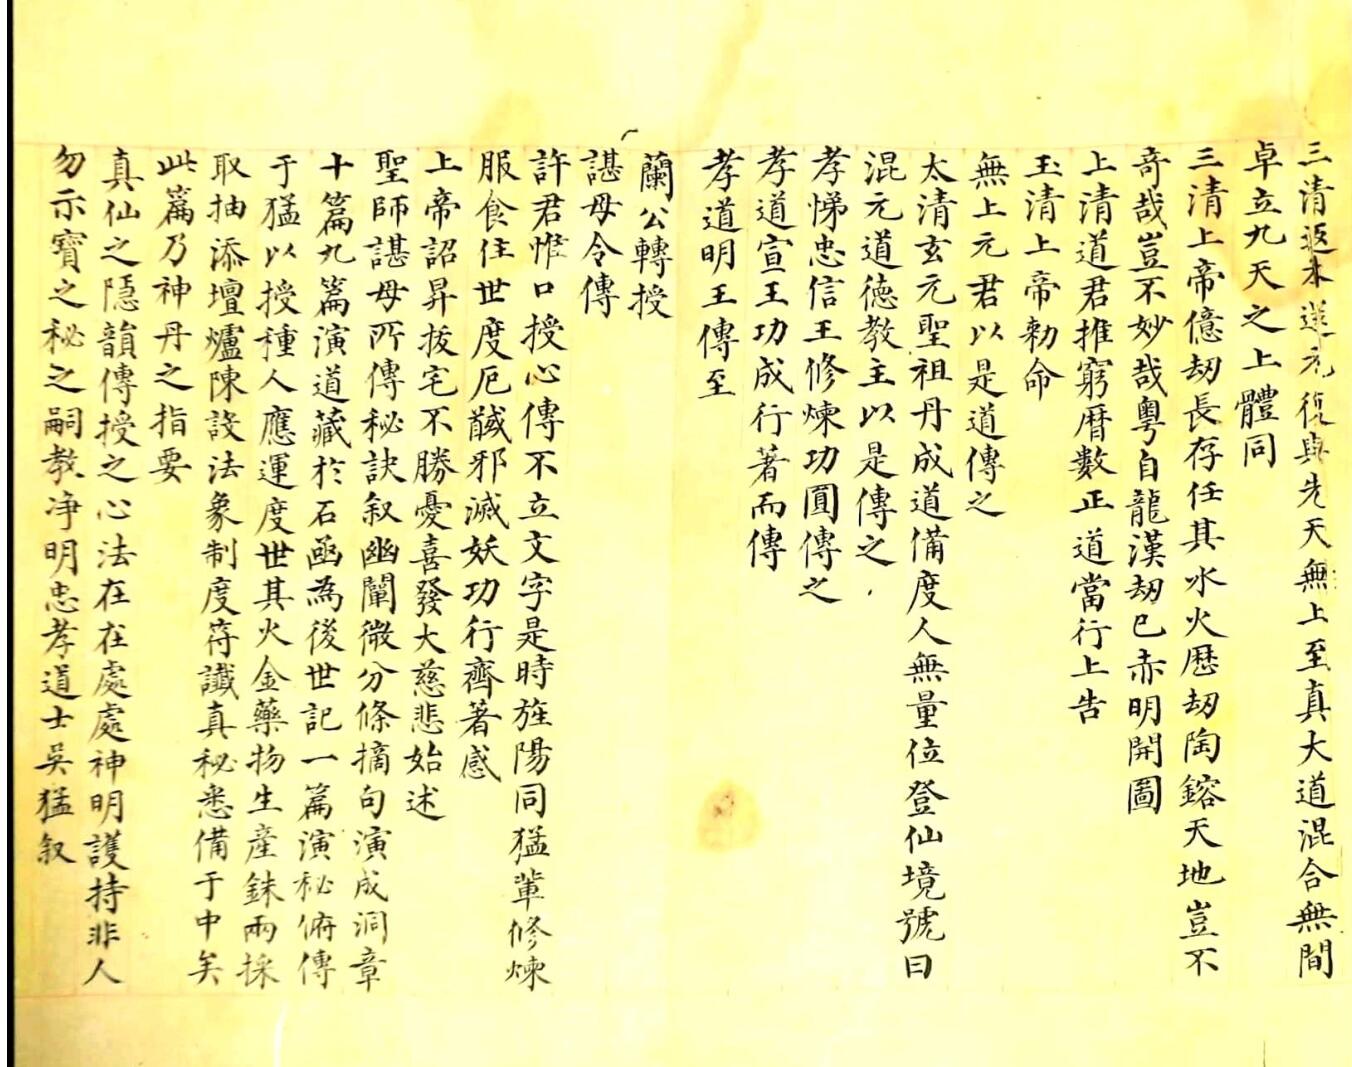 三清返本還元復與先天無上至真大道混合無間
卓立九天之上體同
三清上帝億刼長存任其水火歷刼陶鎔天地豈不
奇哉豈不妙哉粵自龍漢刼已赤明開圖
上清道君推窮曆數正道當行上告
玉清上帝勑命
無上元君以是道傳之
太清玄元聖祖丹成道備度人無量位登仙境號曰
混元道德教主以是傳之
孝悌忠信王修煉功圓傳之
孝道宣王功成行著而傳
孝道明王傳至
蘭公轉授
諶母令傳
許君惟口授心傳不立文字是時旌陽同猛輩修煉
服食住世度厄馘邪滅妖功行齊著感
上帝詔昇拔宅不勝憂喜發大慈悲始述
聖師諶母所傳秘訣叙幽闡微分條摘句演成洞章
十篇九篇演道藏於石函為後世記一篇演秘俯傳
于猛以授種人應運度世其火金藥物生產銖兩採
取抽添壇爐陳設法象制度符讖真秘悉備于中矣
此篇乃神丹之指要
真仙之隱韻傳授之心法在在處處神明護持非人
勿示寶之秘之嗣教凈明忠孝道士吳猛叙